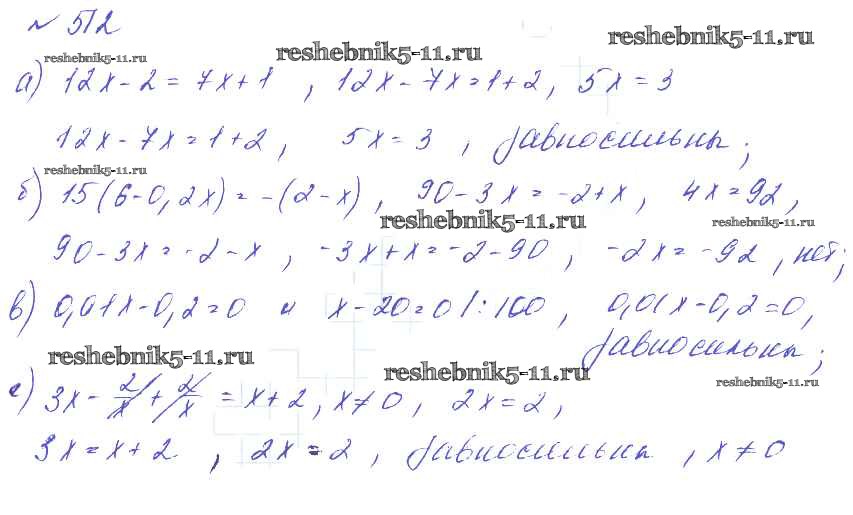 № 512
reshebnik5-11.ru reshebnik5-11.ru reshebnik5-11.ru
а) 12x - 2 = 7x + 1 , 12x - 7x = 1 + 2, 5x = 3
12x - 7x = 1 + 2, 5x = 3 , равносильны;
reshebnik5-11.ru
б) 15(6 - 0,2x) = -(2 - x), 90 - 3x = -2 + x, 4x = 92,
reshebnik5-11.ru reshebnik5-11.ru
90 - 3x = -2 - x , -3x + x = -2 - 90 , -2x = -92 , нет;
в) 0,01x - 0,2 = 0 и x - 20 = 0 /: 100 , 0,01x - 0,2 = 0,
равносильны;
reshebnik5-11.ru reshebnik5-11.ru reshebnik5-11.ru
г) 3x - 2/x + 2/x = x + 2, x ≠ 0, 2x = 2,
3x = x + 2 , 2x = 2 , равносильны , x ≠ 0